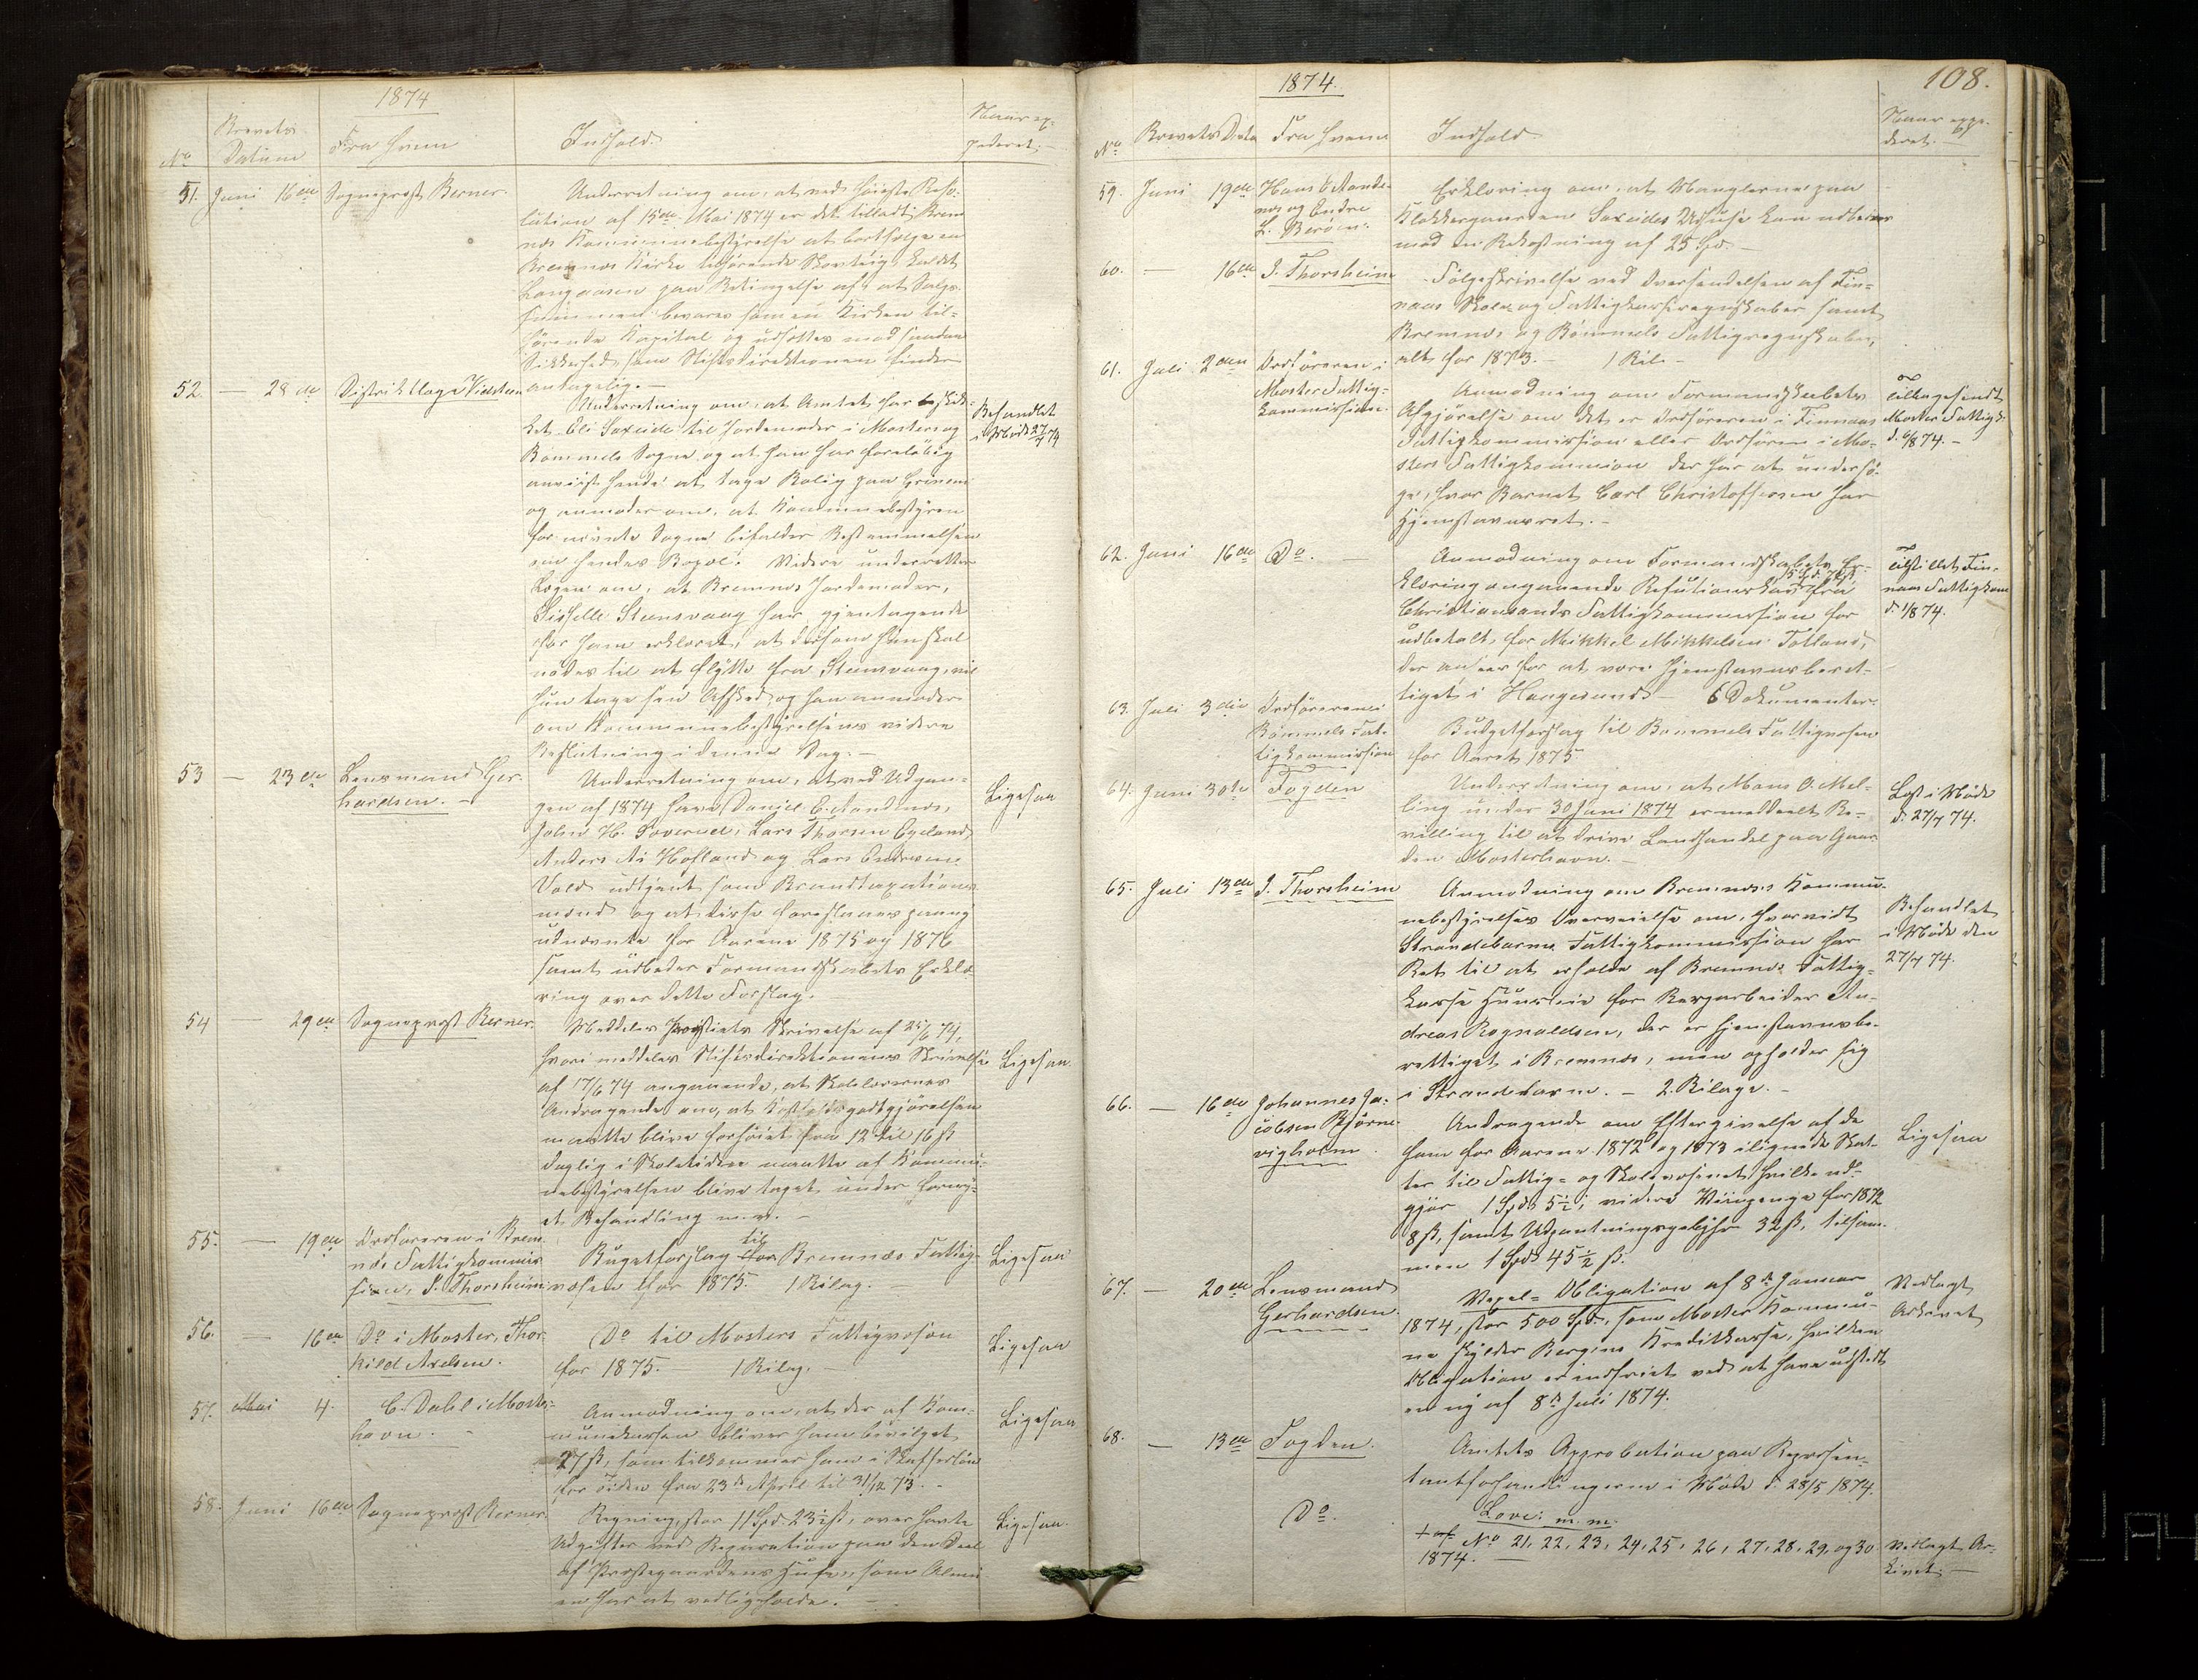 1874
No
Brevets
Datum
Fra Hvem
Indhold.
Naar ex-
pederet.
51. Juni 16de Sogneprest Berner.
Underretning om, at ved høieste Reso-
lution af 15de Mai 1874 er det tilladt Brem
nes Kommunebestyrelse at bortsælge en
Bremnes Kirke tilhørende Skovteig kaldet
Langaasen paa Betingelse af at Salgs-
summen bevares som en Kirken til-
hørende Kapital og udsættes mod saadan
Sikkerhed som Stiftsdirektionen finder
antagelig. —
52. — 28de Distriktslæge Vidsteen
Underretning om, at Amtet har beskik-
ket Eli Sæxeide til Jordemoder i Mosters og
Bømmels Sogne og at han har foreløbig
anviist hende at tage Bolig paa Grinem
og anmoder om, at Kommunebestyren
for nævnte Sogne bifalder Bestemmelsen
om hendes Bopæl. Videre underretter
Lægen om, at Bremnes Jordemoder,
Sisselle Steensvaag har gjentagende
for ham erklæret, at dersom hun skal
nødes til at flytte fra Steensvaag, vil
hun tage sin Afsked og han anmoder
om Kommunebestyrelsens videre
Beslutning i denne Sag. —
Behandlet
i Møde 27/7 74
53 — 23de Lensmand Ger-
hardsen. —
Underretning om, at ved Udgan-
gen af 1874 have Daniel C. Aandnes,
John H. Tovernel, Lars Thorsen Egeland
Anders A. Hofland og Lars Endresen
Vold udtjent som Brandtaxations
mænd og at disse foreslaaes paany
udnævnte for Aarene 1875 og 1876
samt udbeder Formandskabets Erklæ-
ring over dette Forslag.
Ligesaa
54 — 29de Sogneprest Berner.
Meddeler Provstiets Skrivelse af 25/6 74,
hvori meddeles Stiftsdirektionens Skrivelse
af 17/6 74 angaaende, at Skolelærernes
Andragende om, at Kostholdsgodtgjørelsen
maatte blive forhøiet fra 12 til 16 ß
daglig i Skoletiden maatte af Kommu-
nebestyrelsen blive taget under forny-
et Behandling m.v. —
Ligesaa.
55. — 19de Ordføreren i Brem-
nes Fattigkommis
sion, S. Thorsheim
Bugetforslag for til Bremnæs Fattig-
væsen for 1875. 1 Bilag.
Ligesaa
56. — 16de Do i Moster, Thor-
kild Axelsen.
Do til Mosters Fattigvæsen
for 1875. 1 Bilag. —
Ligesaa
57. Mai 4. C. Dahl i Moster-
havn. —
Anmodning om, at der af Kom-
munekassen bliver ham bevilget
27 ß, som tilkommer ham i Skafferløn
for Tiden fra 23de April til 31/12 73. —
Ligesaa
58. Juni 16de Sogneprest Berner.
Regning, stor 11 Spd. 23½ ß, over havte
Udgifter ved Reparation paa den Deel
af Prestegaardens Huse, som Almu
en har at vedligeholde. —
Ligesaa.
1874.
108.
No Brevets Dato Fra Hvem Indhold
Naar expe-
deret. —
59. Juni 19de Hans C Aande-
nes og Endre
L. Børøen.
Erklæring om, at Manglerne paa
Klokkergaarden Sæxeides Udhuse kan udbedres
med en Bekostning af 25 Spd. —
60. — 16de S. Thorsheim
Følgeskrivelse ved Oversendelsen af Fin-
naas Skole og Fattigkasseregnskaber samt
Bremnes og Bømmels Fattigregnskaber,
alt for 1873. — 1 Bil. —
61. Juli 2den Ordføreren i
Moster Fattig-
kommission.
Anmodning om Formandskabets
Afgjørelse om det er Ordføreren i Finnaas
Fattigkommission eller Ordføren i Mo-
sters Fattigkommion der har at undersø-
ge, hvor Barnet Carl Christoffersen har
Hjemstavnsret. —
Tilbagesendt
Moster Fattigk.
d. 6/8 74. —
62. Juni 16de Do. —
Anmodning om Formandskabets Er-
klæring angaaende Refusionskrav fra
Christiansands Fattigkommission for
udbetalt for Mikkel Mikkelsen Totland,
der ansees for at være hjemstavnsberet-
tiget i Haugesund — 6 Dokumenter.
Tilstillet Fin-
naas Fattigkom
d. 1/8 74.
63. Juli 3die Ordføreren i
Bømmels Fat-
tigkommission
Budgetforslag til Bømmels Fattigvæsen
for Aaret 1875
64. Juni 30te Fogden
Underretning om, at Mons O. Mel-
ling under 30 Juni 1874 er meddeelt Be-
villing til at drive Landhandel paa Gaar
den Mosterhavn. —
Læst i Møde
d. 27/7 74.
65. Juli 13de S. Thorsheim
Anmodning om Bremnæs Kommu-
nebestyrelses Overveielse om, hvorvidt
Strandebarms Fattigkommission har
Ret til at erholde af Bremnes Fattig-
kasse Huusleie for Bergarbeider An-
dreas Rognaldsen, der er hjemstavnsbe-
rettiget i Bremnes, men opholder sig
i Strandebarm. — 2 Bilage. —
Behandlet
i Møde den
27/7 74.
66. — 16de Johannes Ja-
cobsen Bjørne-
vigholm.
Andragende om Eftergivelse af de
ham for Aarene 1872 og 1873 ilignede Skat-
ter til Fattig- og Skolevæsenet, hvilke ud-
gjør 1 Spd 5½; videre Mingenge for 1872
8 ß, samt Udpantningsgebyhr 32 ß, tilsam-
men 1 Spd 45½ ß.
Ligesaa
67. — 20de Lensmand
Gerhardsen.
Vexel-Obligation af 8de Januar
1874, stor 500 Spd., som Moster Kommu-
ne skylder Bergens Kreditkasse, hvilken
Obligation er indfriet ved at have udstedt
en ny af 8de Juli 1874.
Vedlagt
Arkivet
68. — 13de Fogden.
Amtets Approbation paa Repræsen-
tantforhandlingerne i Møde d. 28/5 1874.
Do.
Love: m. m.
No 21, 22, 23, 24, 25, 26, 27, 28, 29, og 30
1874. —
Vedlagt Ar-
kivet. —